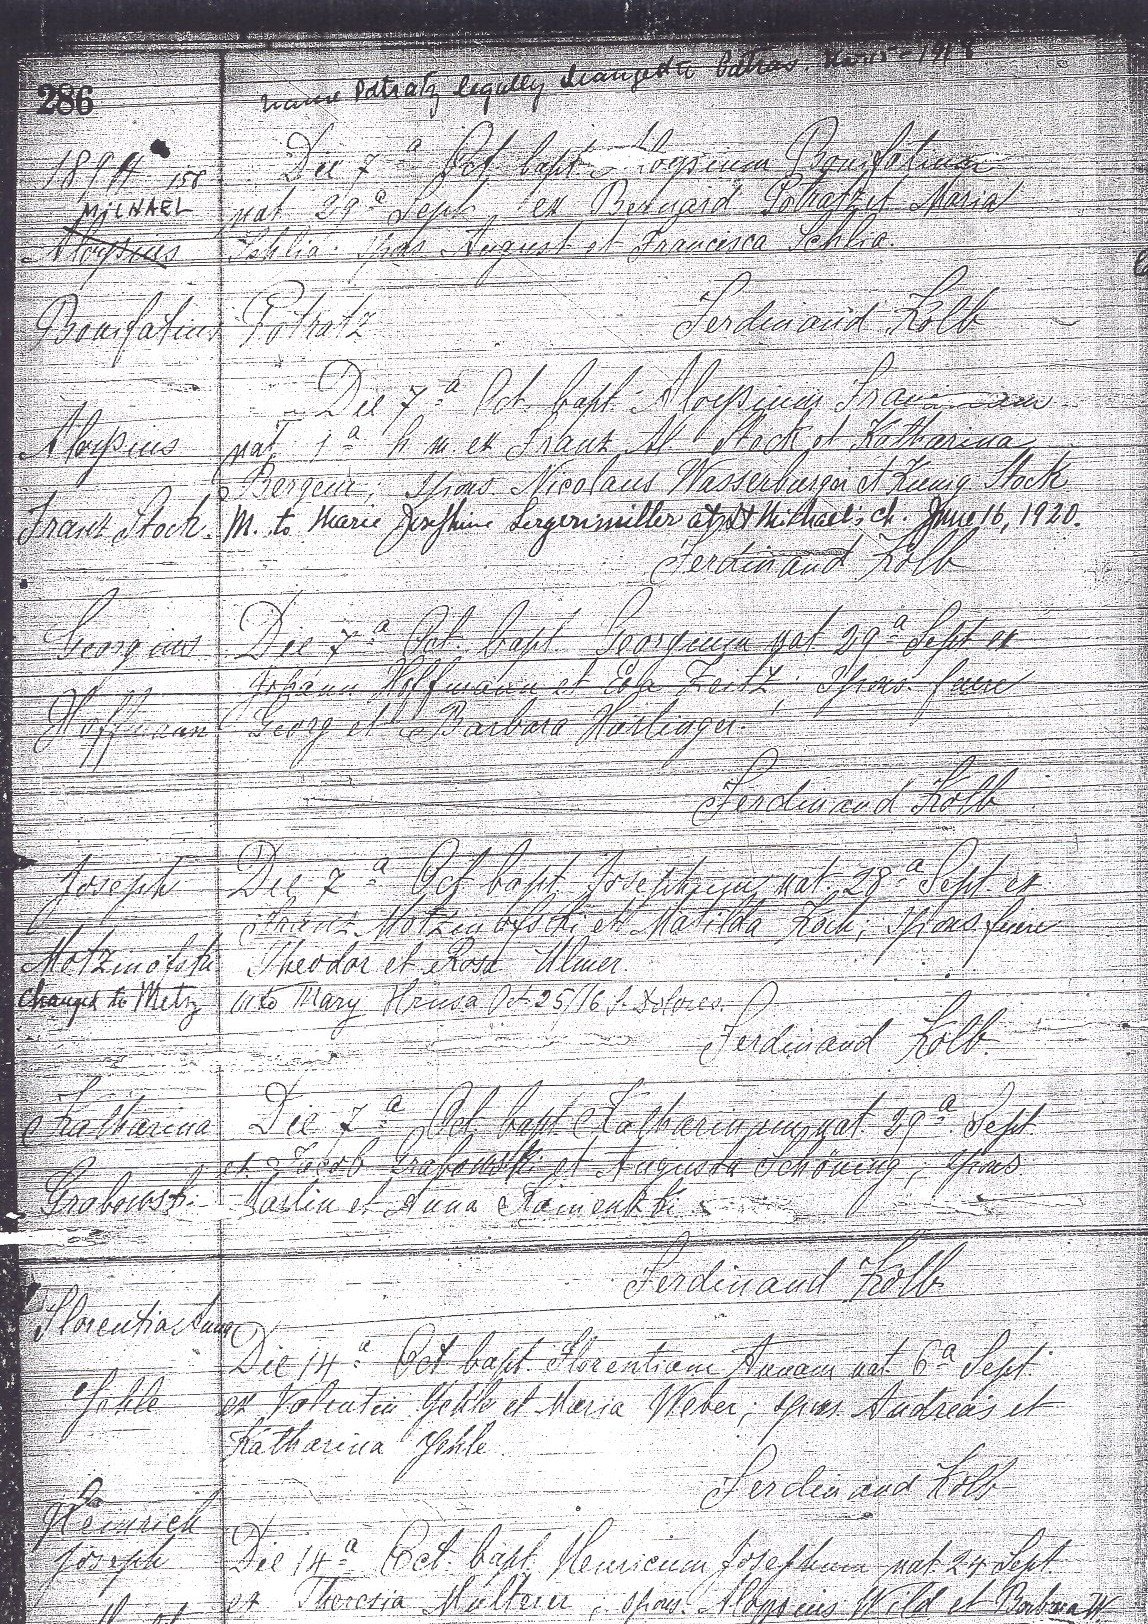 286
name Potratz legally changed to Patras. 1918
1894 158
MICHAEL
Aloysius
Bonifatius
Die 7ª Oct. bapt. Aloysium Bonifatium
nat 29ª Sept. ex Bernard Potratz et Maria
Schlia. spons August et Francisca Schlia.
Potratz Ferdinand Kolb
Aloysius
Franz Stock.
Die 7ª Oct. bapt. Aloysium
nat. 1ª h. m. ex Franz Al Stock et Katharina
spons. Nicolaus Wasserburger et Stock
M. to Marie Josephine at St Michael's ch. June 16, 1920.
Ferdinand Kolb
Georgius
Hoffmann
Die 7ª Oct. bapt Georgium nat 29ª Sept ex
Johann Hoffmann et Eva ; spons. fuere
Georg et Barbara Hartinger.
Ferdinand Kolb
Joseph
Motzinofski
changed to Metz
Die 7ª Oct bapt. Josephum nat 28ª Sept. ex
Franz Motzinofski et Matilda Koch; spons fuere
Theodor et Rosa Ulmer.
m to Mary Oct 25/16 S. Dolores.
Ferdinand Kolb.
Katharina
Grabowski
Die 7ª Oct. bapt. Katharinam nat. 29ª Sept
ex Jacob Grabowski et Augusta Schöning; spons
Martin et Anna
Ferdinand Kolb
Florentia Anna
Yehle
Die 14ª Oct bapt Florentiam Annam nat 6ª Sept.
ex Valentin Yehle et Maria Weber; spons. Andreas et
Katharina Yehle.
Ferdinand Kolb
Heinrich
Joseph
Die 14ª Oct. bapt. Henricum Josephum nat 24 Sept.
ex Theresia ; spons. Aloysius Wild et Barbara W